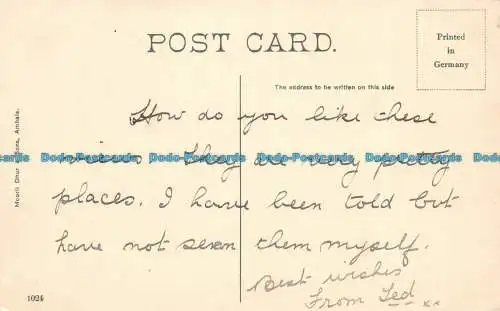 POST CARD.
Printed
in
Germany
The address to be written on this side
How do you like these
views They are very pretty
places. I have been told but
have not seen them myself.
Best wishes
From Ted xx
Dodo-Postcards Dodo-Postcards Dodo-Postcards Dodo-Postcards
Sons, Ambala.
1024